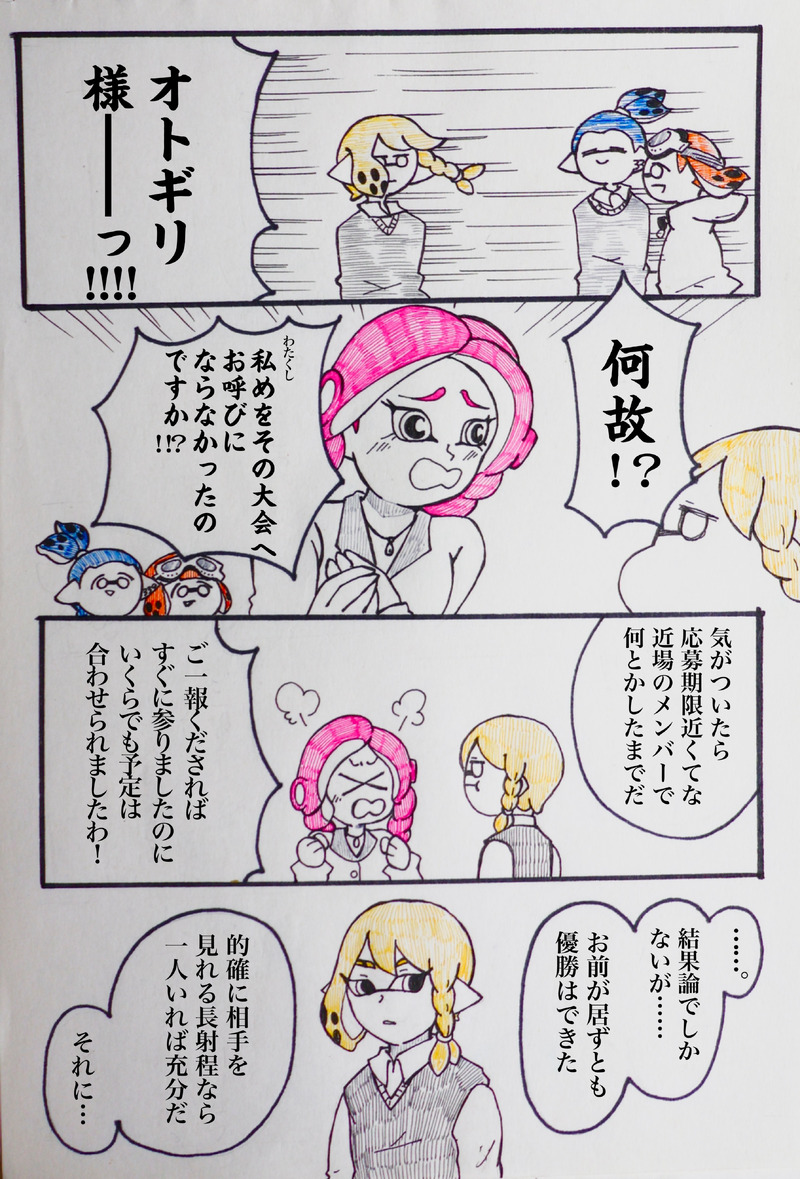 オトギリ
様――っ
!!!!
何故!?
わたくし
私めをその大会へ
お呼びに
ならなかったの
ですか!!?
気がついたら
応募期限近くてな
近場のメンバーで
何とかしたまでだ
ご一報くだされば
すぐに参りましたのに
いくらでも予定は
合わせられましたわ！
……。
結果論でしか
ないが……
お前が居ずとも
優勝はできた
的確に相手を
見れる長射程なら
一人いれば充分だ
それに…